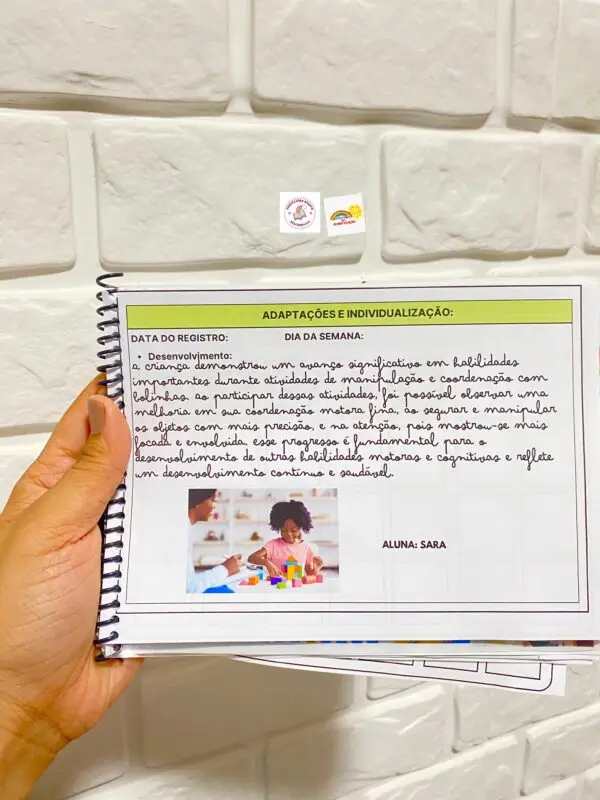 ADAPTAÇÕES E INDIVIDUALIZAÇÃO:
DATA DO REGISTRO: DIA DA SEMANA:
• Desenvolvimento:
a criança demonstrou um avanço significativo em habilidades
importantes durante atividades de manipulação e coordenação com
bolinhas. ao participar dessas atividades, foi possível observar uma
melhoria em sua coordenação motora fina, ao segurar e manipular
os objetos com mais precisão, e na atenção, pois mostrou-se mais
focada e envolvida. esse progresso é fundamental para o
desenvolvimento de outras habilidades motoras e cognitivas e reflete
um desenvolvimento contínuo e saudável.
ALUNA: SARA